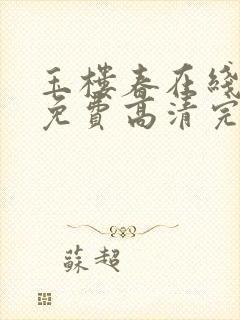 玉樓春在綫
免費高清完
蘇超